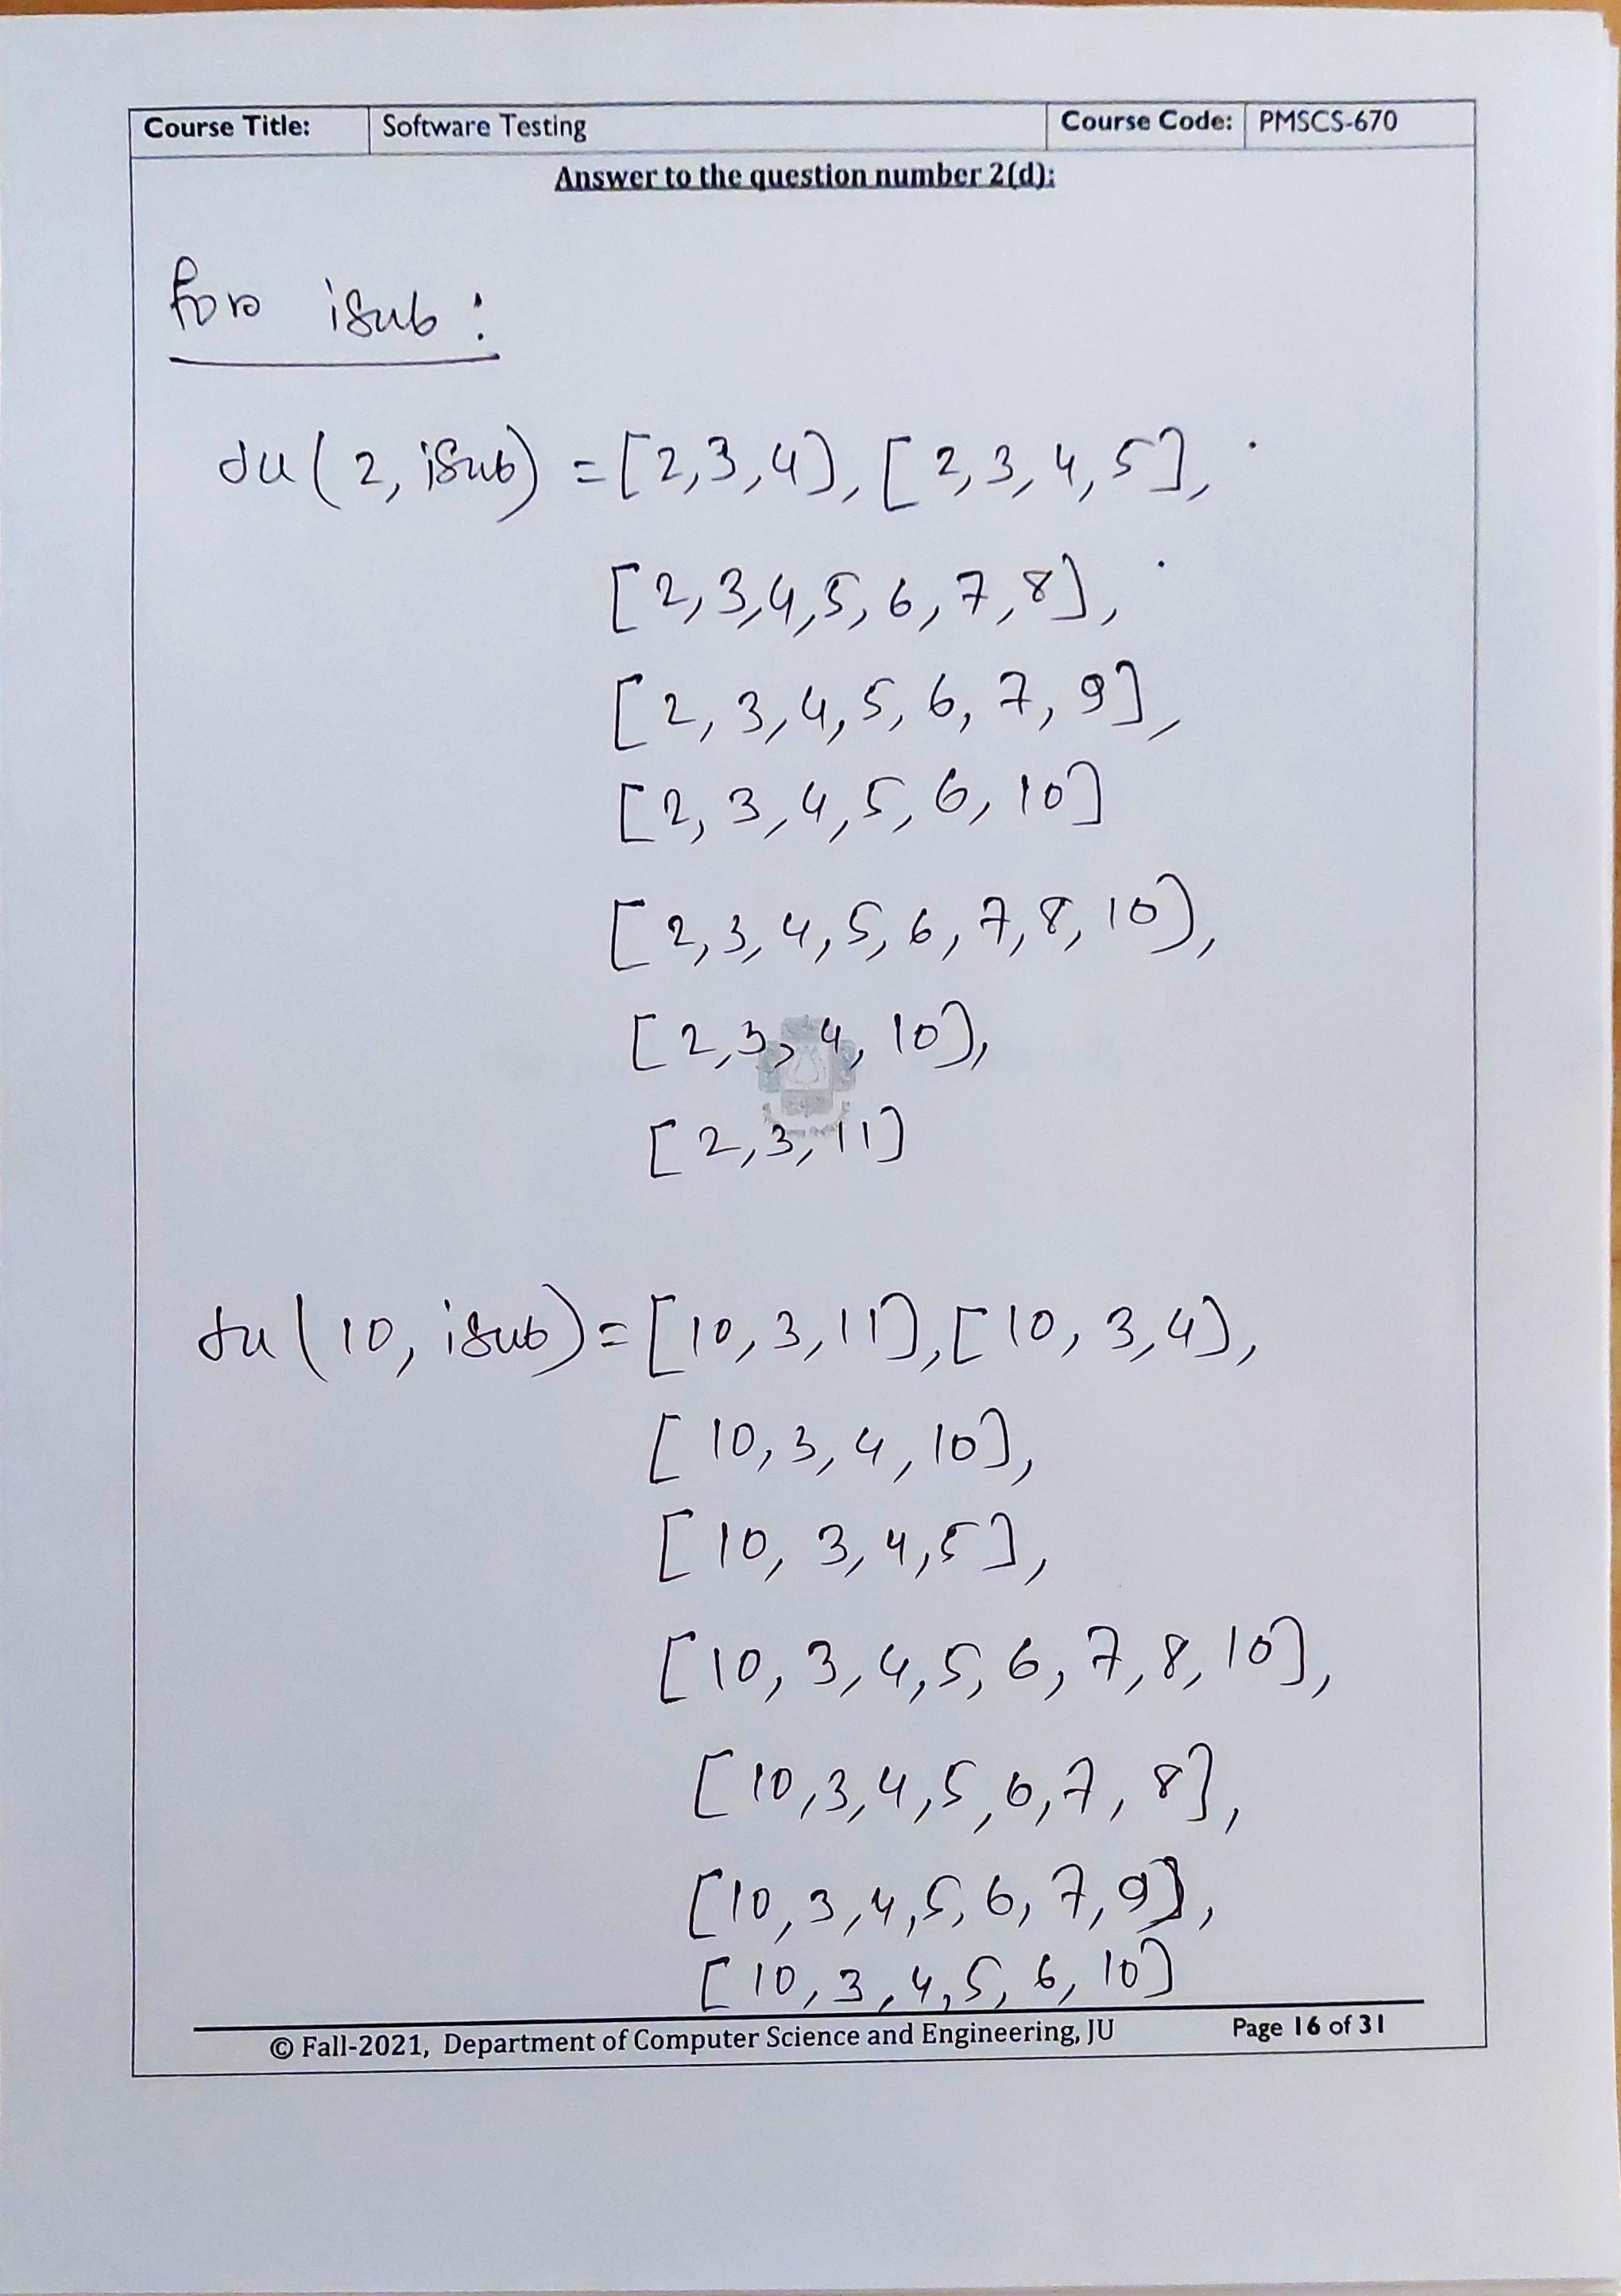 Course Title: Software Testing Course Code: PMSCS-670
Answer to the question number 2(d):
for isub:
du(2, isub) = [2,3,4], [2,3,4,5],
[2,3,4,5,6,7,8],
[2,3,4,5,6,7,9],
[2,3,4,5,6,10]
[2,3,4,5,6,7,8,10],
[2,3,4,10],
[2,3,11]
du(10, isub) = [10,3,11], [10,3,4],
[10,3,4,10],
[10,3,4,5],
[10,3,4,5,6,7,8,10],
[10,3,4,5,6,7,8],
[10,3,4,5,6,7,9],
[10,3,4,5,6,10]
© Fall-2021, Department of Computer Science and Engineering, JU Page 16 of 31